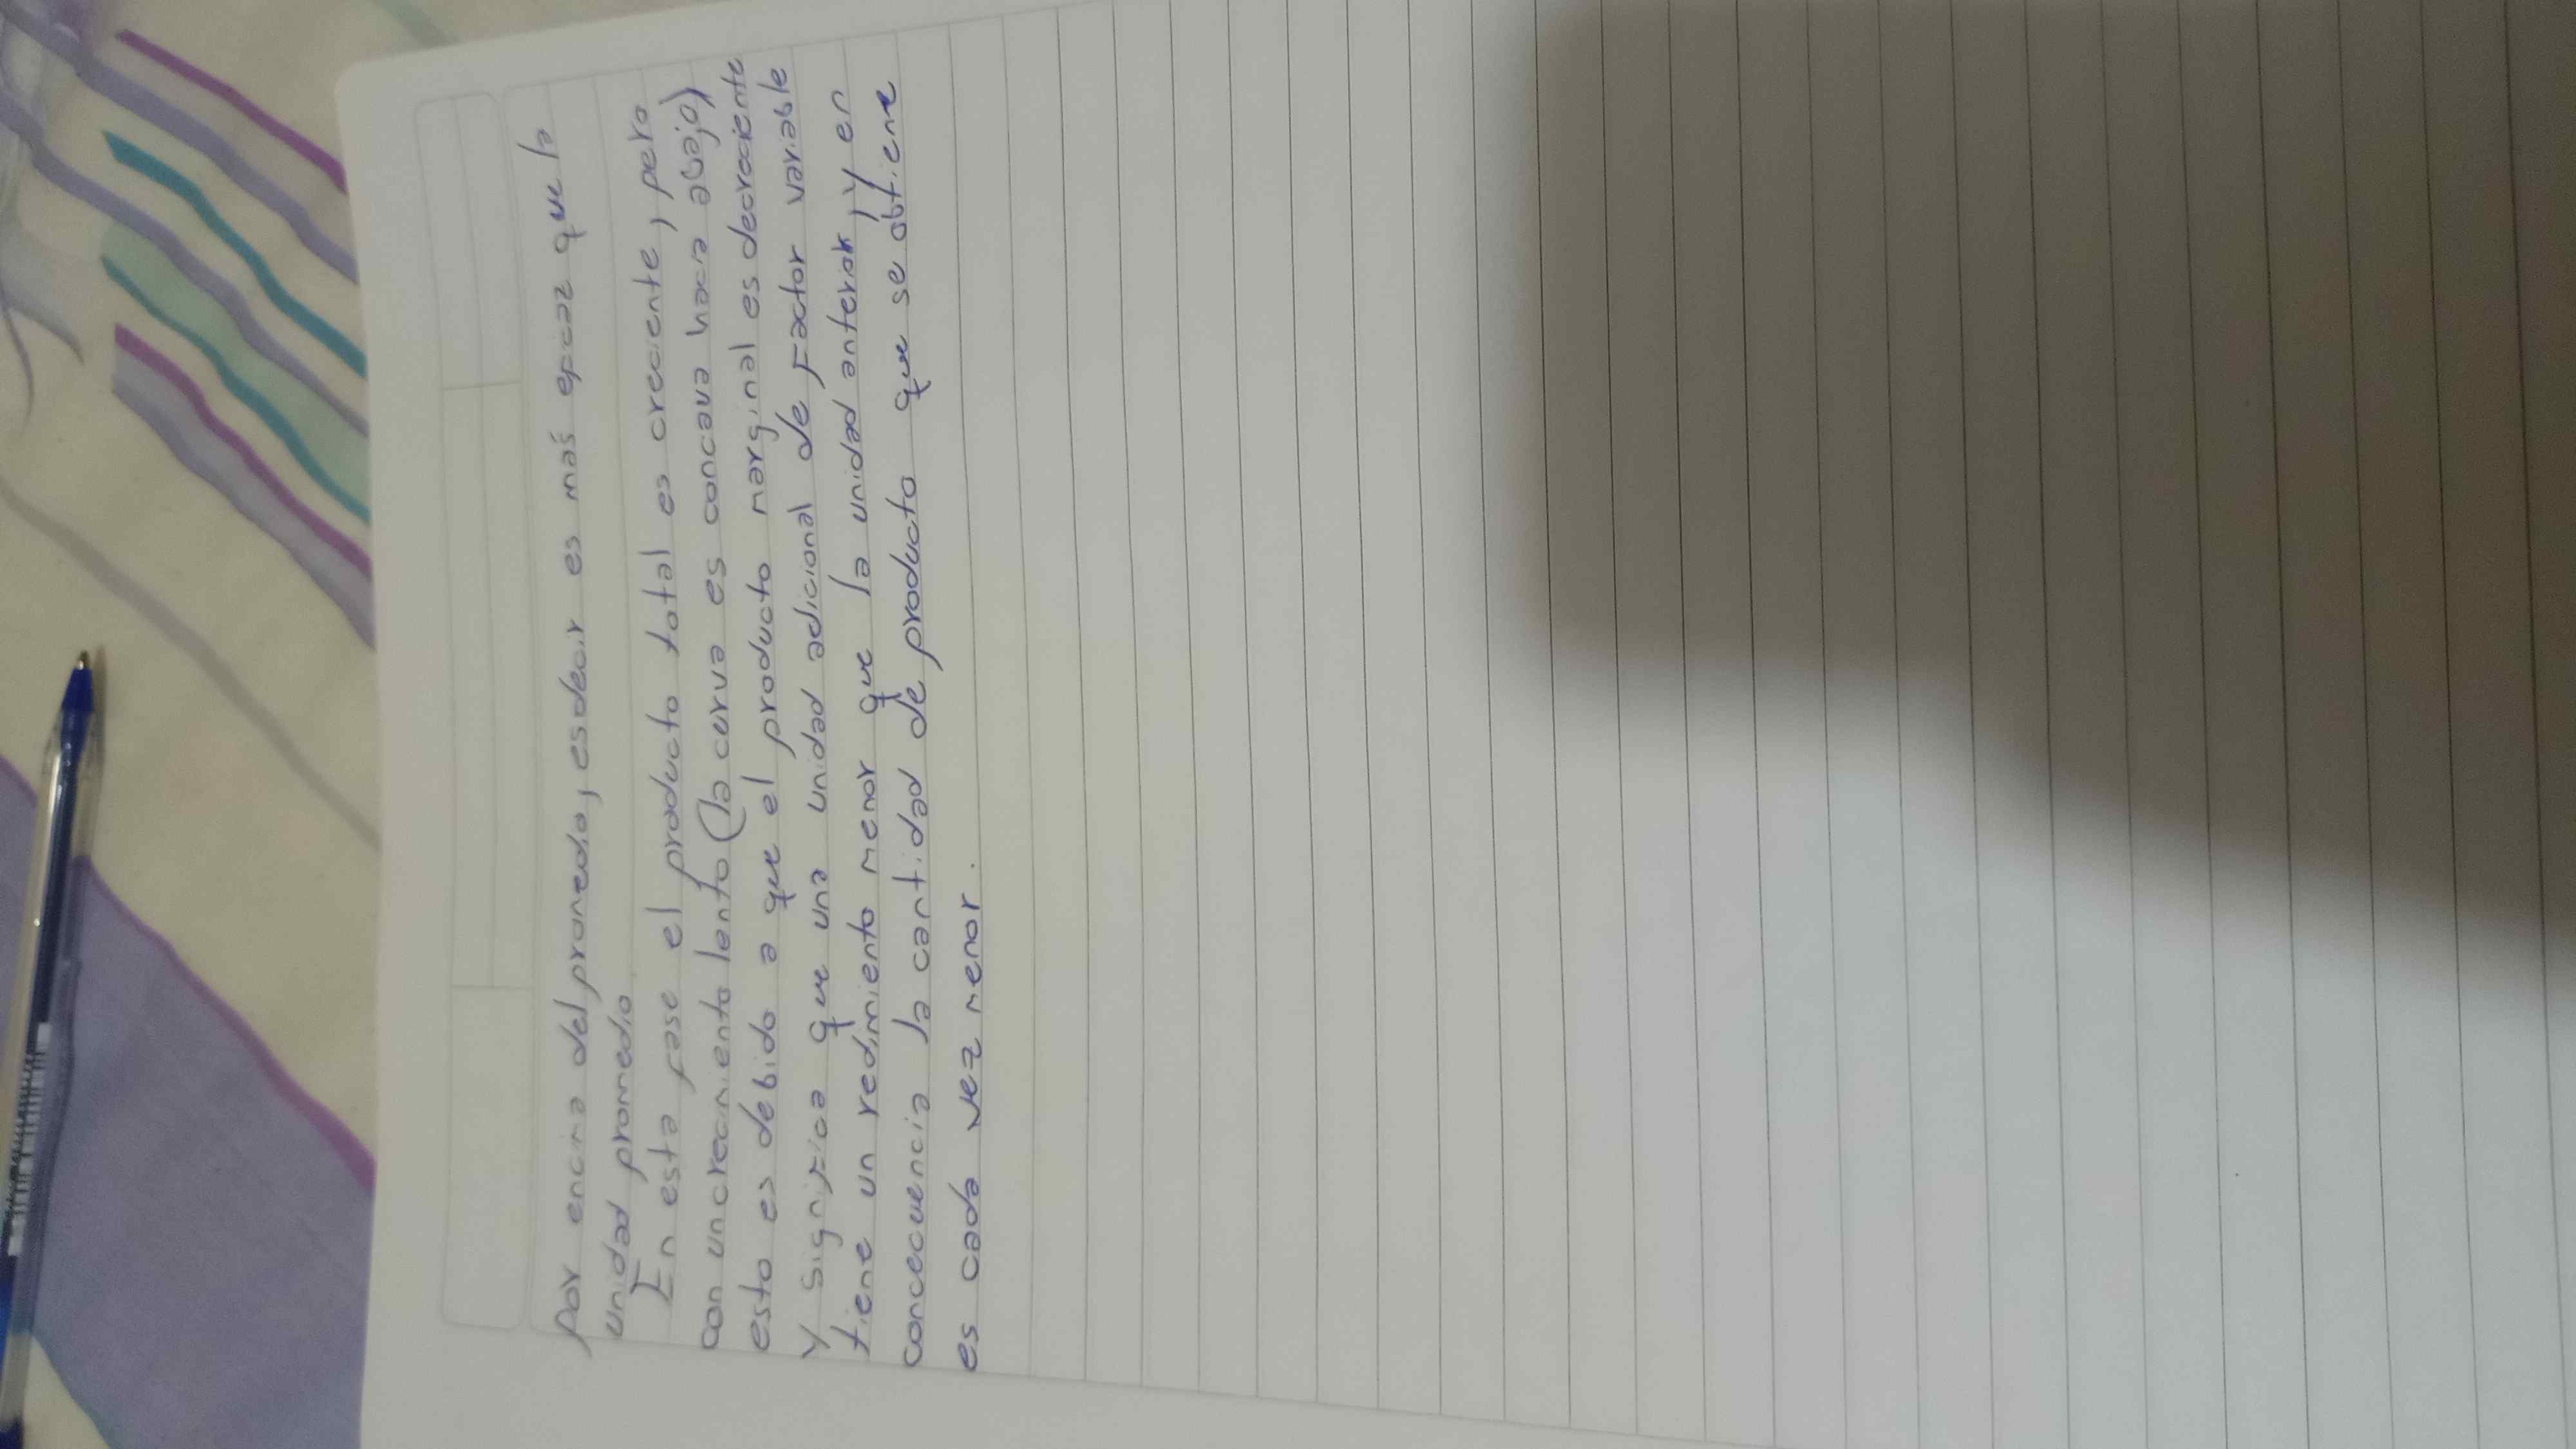 por encima del promedio, es decir es más epcaz que la
unidad promedio
En esta fase el producto total es creciente, pero
con un crecimiento lento (la curva es concava hacia abajo)
esto es debido a que el producto marginal es decreciente
y significa que una unidad adicional de factor variable
tiene un redimiento menor que la unidad anterior, y en
concecuencia la cantidad de producto que se obtiene
es cada vez menor.